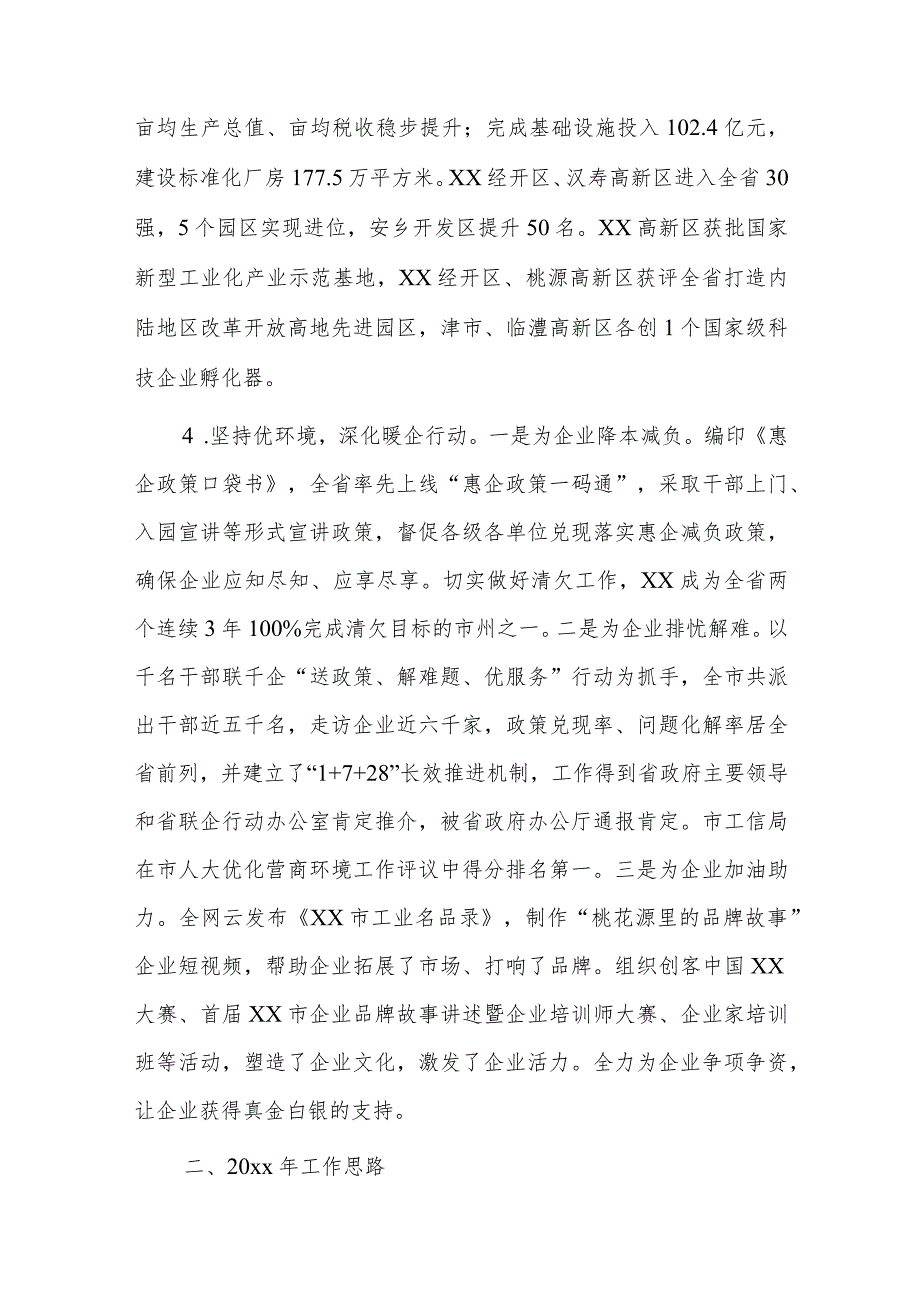 亩均生产总值、亩均税收稳步提升；完成基础设施投入 102.4 亿元，
建设标准化厂房 177.5 万平方米。XX 经开区、汉寿高新区进入全省 30
强，5 个园区实现进位，安乡开发区提升 50 名。XX 高新区获批国家
新型工业化产业示范基地，XX 经开区、桃源高新区获评全省打造内
陆地区改革开放高地先进园区，津市、临澧高新区各创 1 个国家级科
技企业孵化器。
4 .坚持优环境，深化暖企行动。一是为企业降本减负。编印《惠
企政策口袋书》，全省率先上线“惠企政策一码通”，采取干部上门、
入园宣讲等形式宣讲政策，督促各级各单位兑现落实惠企减负政策，
确保企业应知尽知、应享尽享。切实做好清欠工作，XX 成为全省两
个连续 3 年 100%完成清欠目标的市州之一。二是为企业排忧解难。以
千名干部联千企“送政策、解难题、优服务”行动为抓手，全市共派
出干部近五千名，走访企业近六千家，政策兑现率、问题化解率居全
省前列，并建立了“1+7+28”长效推进机制，工作得到省政府主要领导
和省联企行动办公室肯定推介，被省政府办公厅通报肯定。市工信局
在市人大优化营商环境工作评议中得分排名第一。三是为企业加油助
力。全网云发布《XX 市工业名品录》，制作“桃花源里的品牌故事”
企业短视频，帮助企业拓展了市场、打响了品牌。组织创客中国 XX
大赛、首届 XX 市企业品牌故事讲述暨企业培训师大赛、企业家培训
班等活动，塑造了企业文化，激发了企业活力。全力为企业争项争资，
让企业获得真金白银的支持。
二、20xx 年工作思路